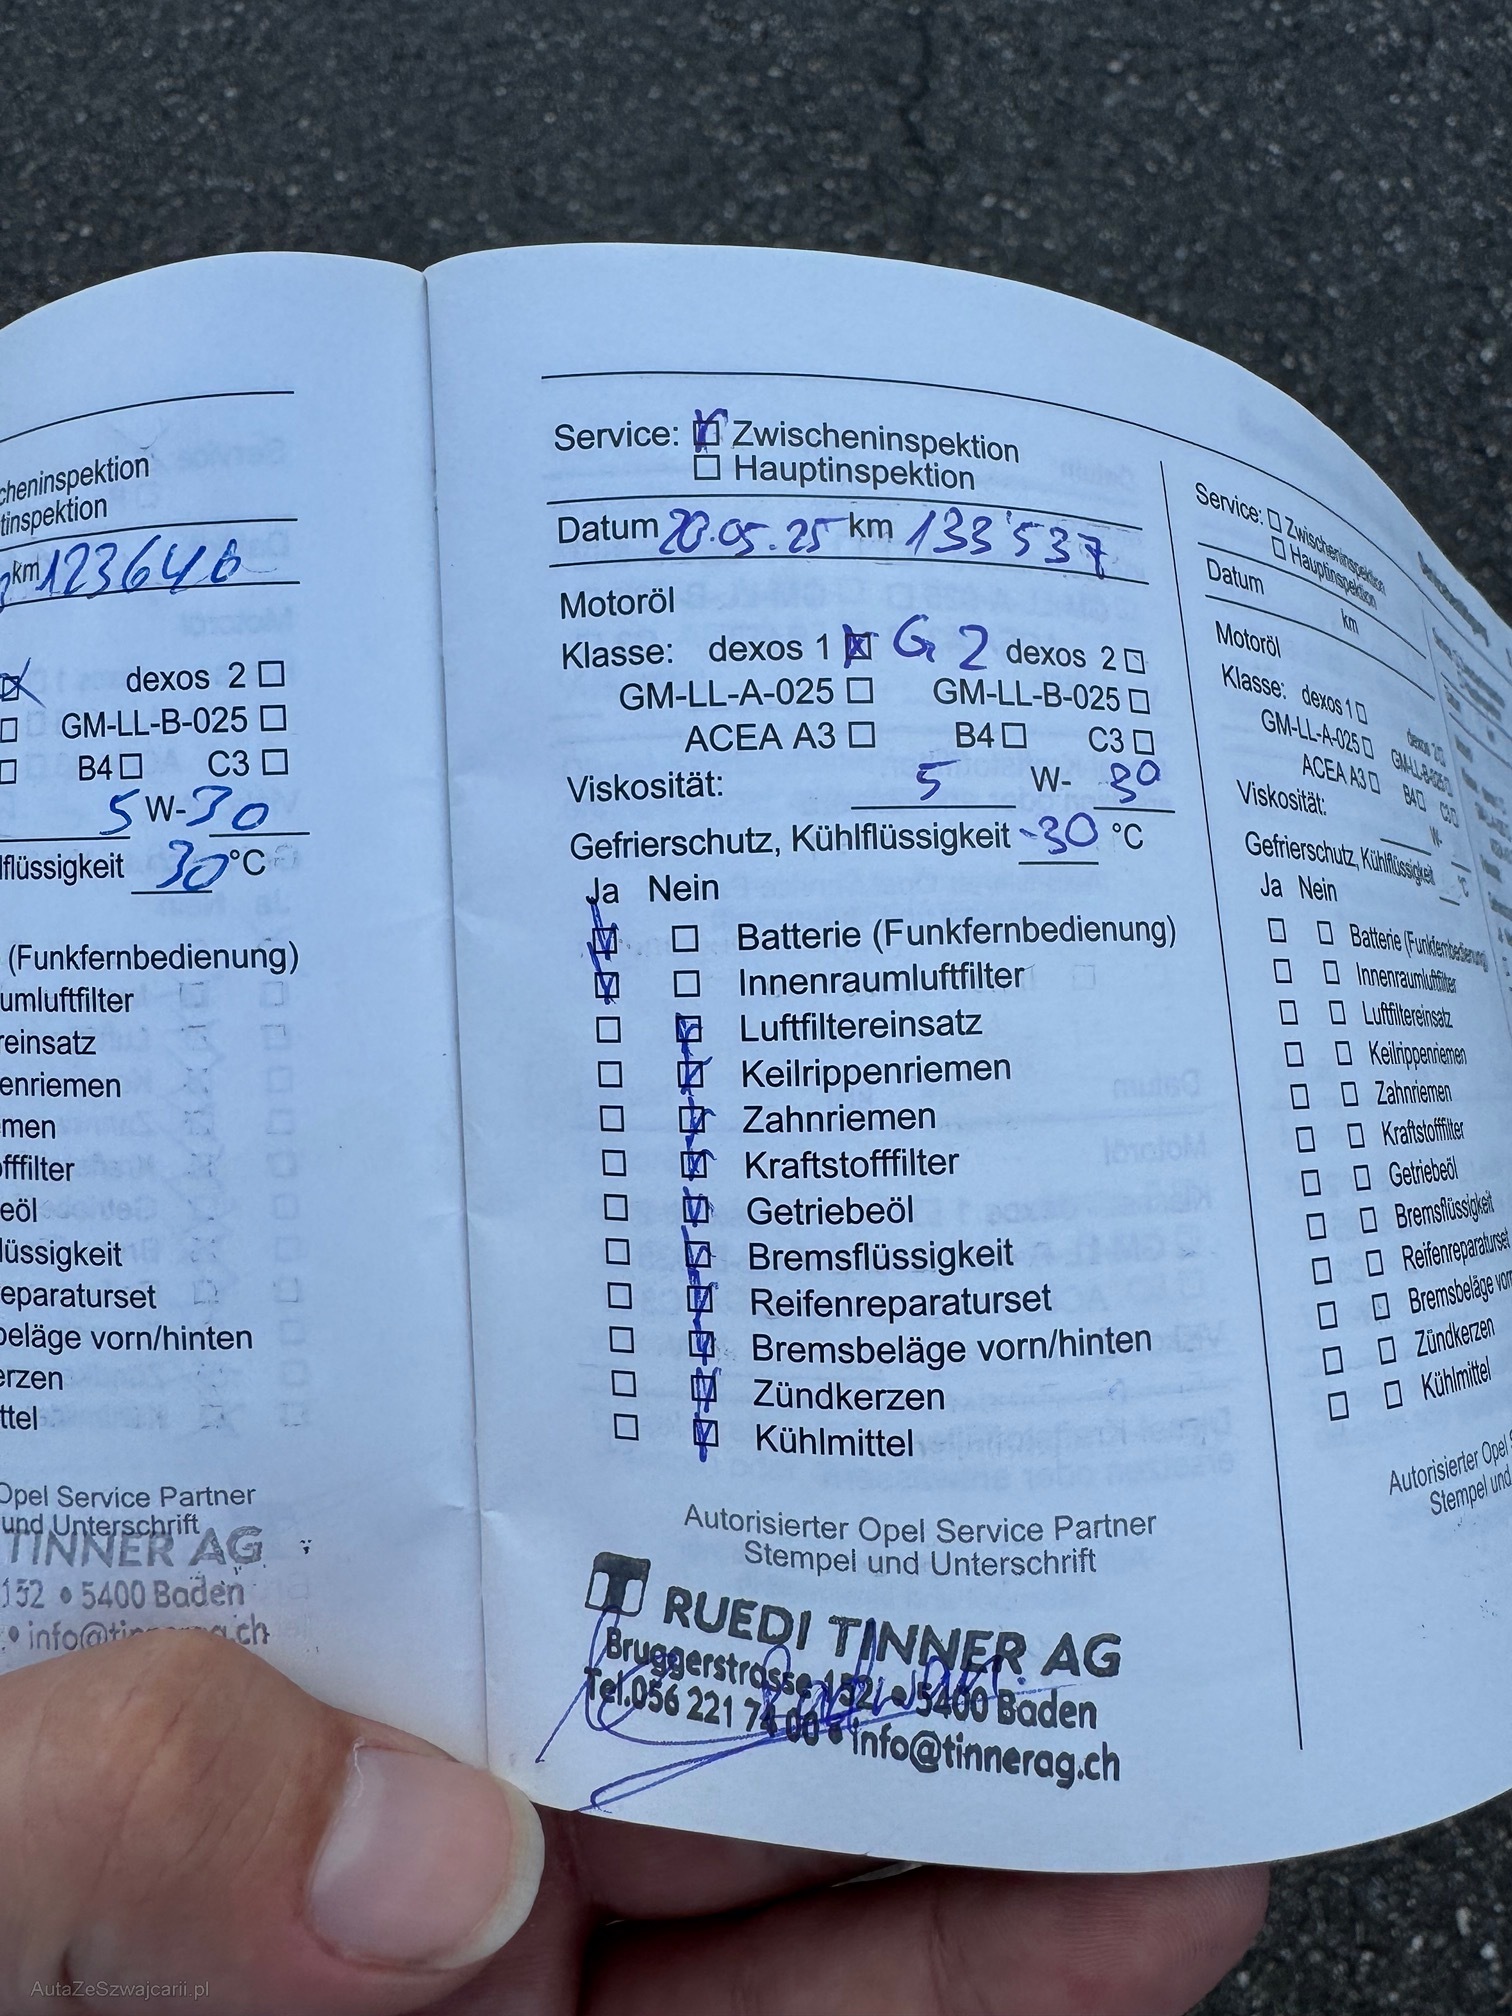 cheninspektion
tinspektion
km 123646
dexos 2
GM-LL-B-025
B4 C3
5 W-30
lflüssigkeit 30 °C
(Funkfernbedienung)
umluftfilter
reinsatz
enriemen
men
offfilter
eöl
lüssigkeit
eparaturset
beläge vorn/hinten
erzen
ttel
Opel Service Partner
und Unterschrift
TINNER AG
152 • 5400 Baden
• info@tinnerag.ch
Service: Zwischeninspektion
Hauptinspektion
Datum 20.05.25 km 133'537
Motoröl
Klasse: dexos 1 G 2 dexos 2
GM-LL-A-025 GM-LL-B-025
ACEA A3 B4 C3
Viskosität: 5 W- 30
Gefrierschutz, Kühlflüssigkeit -30 °C
Ja Nein
Batterie (Funkfernbedienung)
Innenraumluftfilter
Luftfiltereinsatz
Keilrippenriemen
Zahnriemen
Kraftstofffilter
Getriebeöl
Bremsflüssigkeit
Reifenreparaturset
Bremsbeläge vorn/hinten
Zündkerzen
Kühlmittel
Autorisierter Opel Service Partner
Stempel und Unterschrift
RUEDI TINNER AG
Bruggerstrasse 152 • 5400 Baden
Tel.056 221 74 00 • info@tinnerag.ch
Service: Zwischeninspektion
Hauptinspektion
Datum km
Motoröl
Klasse: dexos 1 dexos 2
GM-LL-A-025 GM-LL-B-025
ACEA A3 B4 C3
Viskosität: W-
Gefrierschutz, Kühlflüssigkeit °C
Ja Nein
Batterie (Funkfernbedienung)
Innenraumluftfilter
Luftfiltereinsatz
Keilrippenriemen
Zahnriemen
Kraftstofffilter
Getriebeöl
Bremsflüssigkeit
Reifenreparaturset
Bremsbeläge vor
Zündkerzen
Kühlmittel
Autorisierter Opel S
Stempel und
AutaZeSzwajcarii.pl